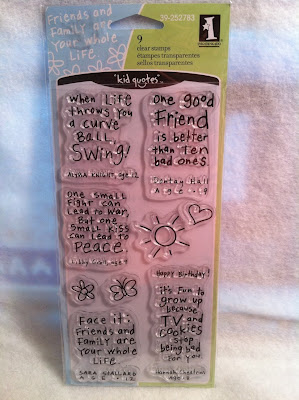 Friends and
Family are
your Whole
Life
39-252783
9
clear stamps
étampes transparentes
sellos transparentes
"kid quotes"
When Life
throws you
a curve
Ball,
Swing!
KNIGHT, age 12
One good
Friend
is better
than Ten
bad ones.
Hall
Age 9
One small
Fight can
Lead to War,
But one
Small Kiss
can Lead to
Peace.
age 9
Happy Birthday!
Face it:
Friends and
Family are
your Whole
Life
SARA
AGE 12
it's Fun to
grow up
because
TV and
cookies
stop
being bad
for you
Hannah
Age